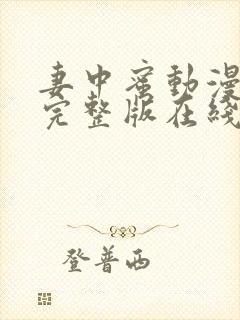 妻中蜜動漫
完整版在綫
登普西